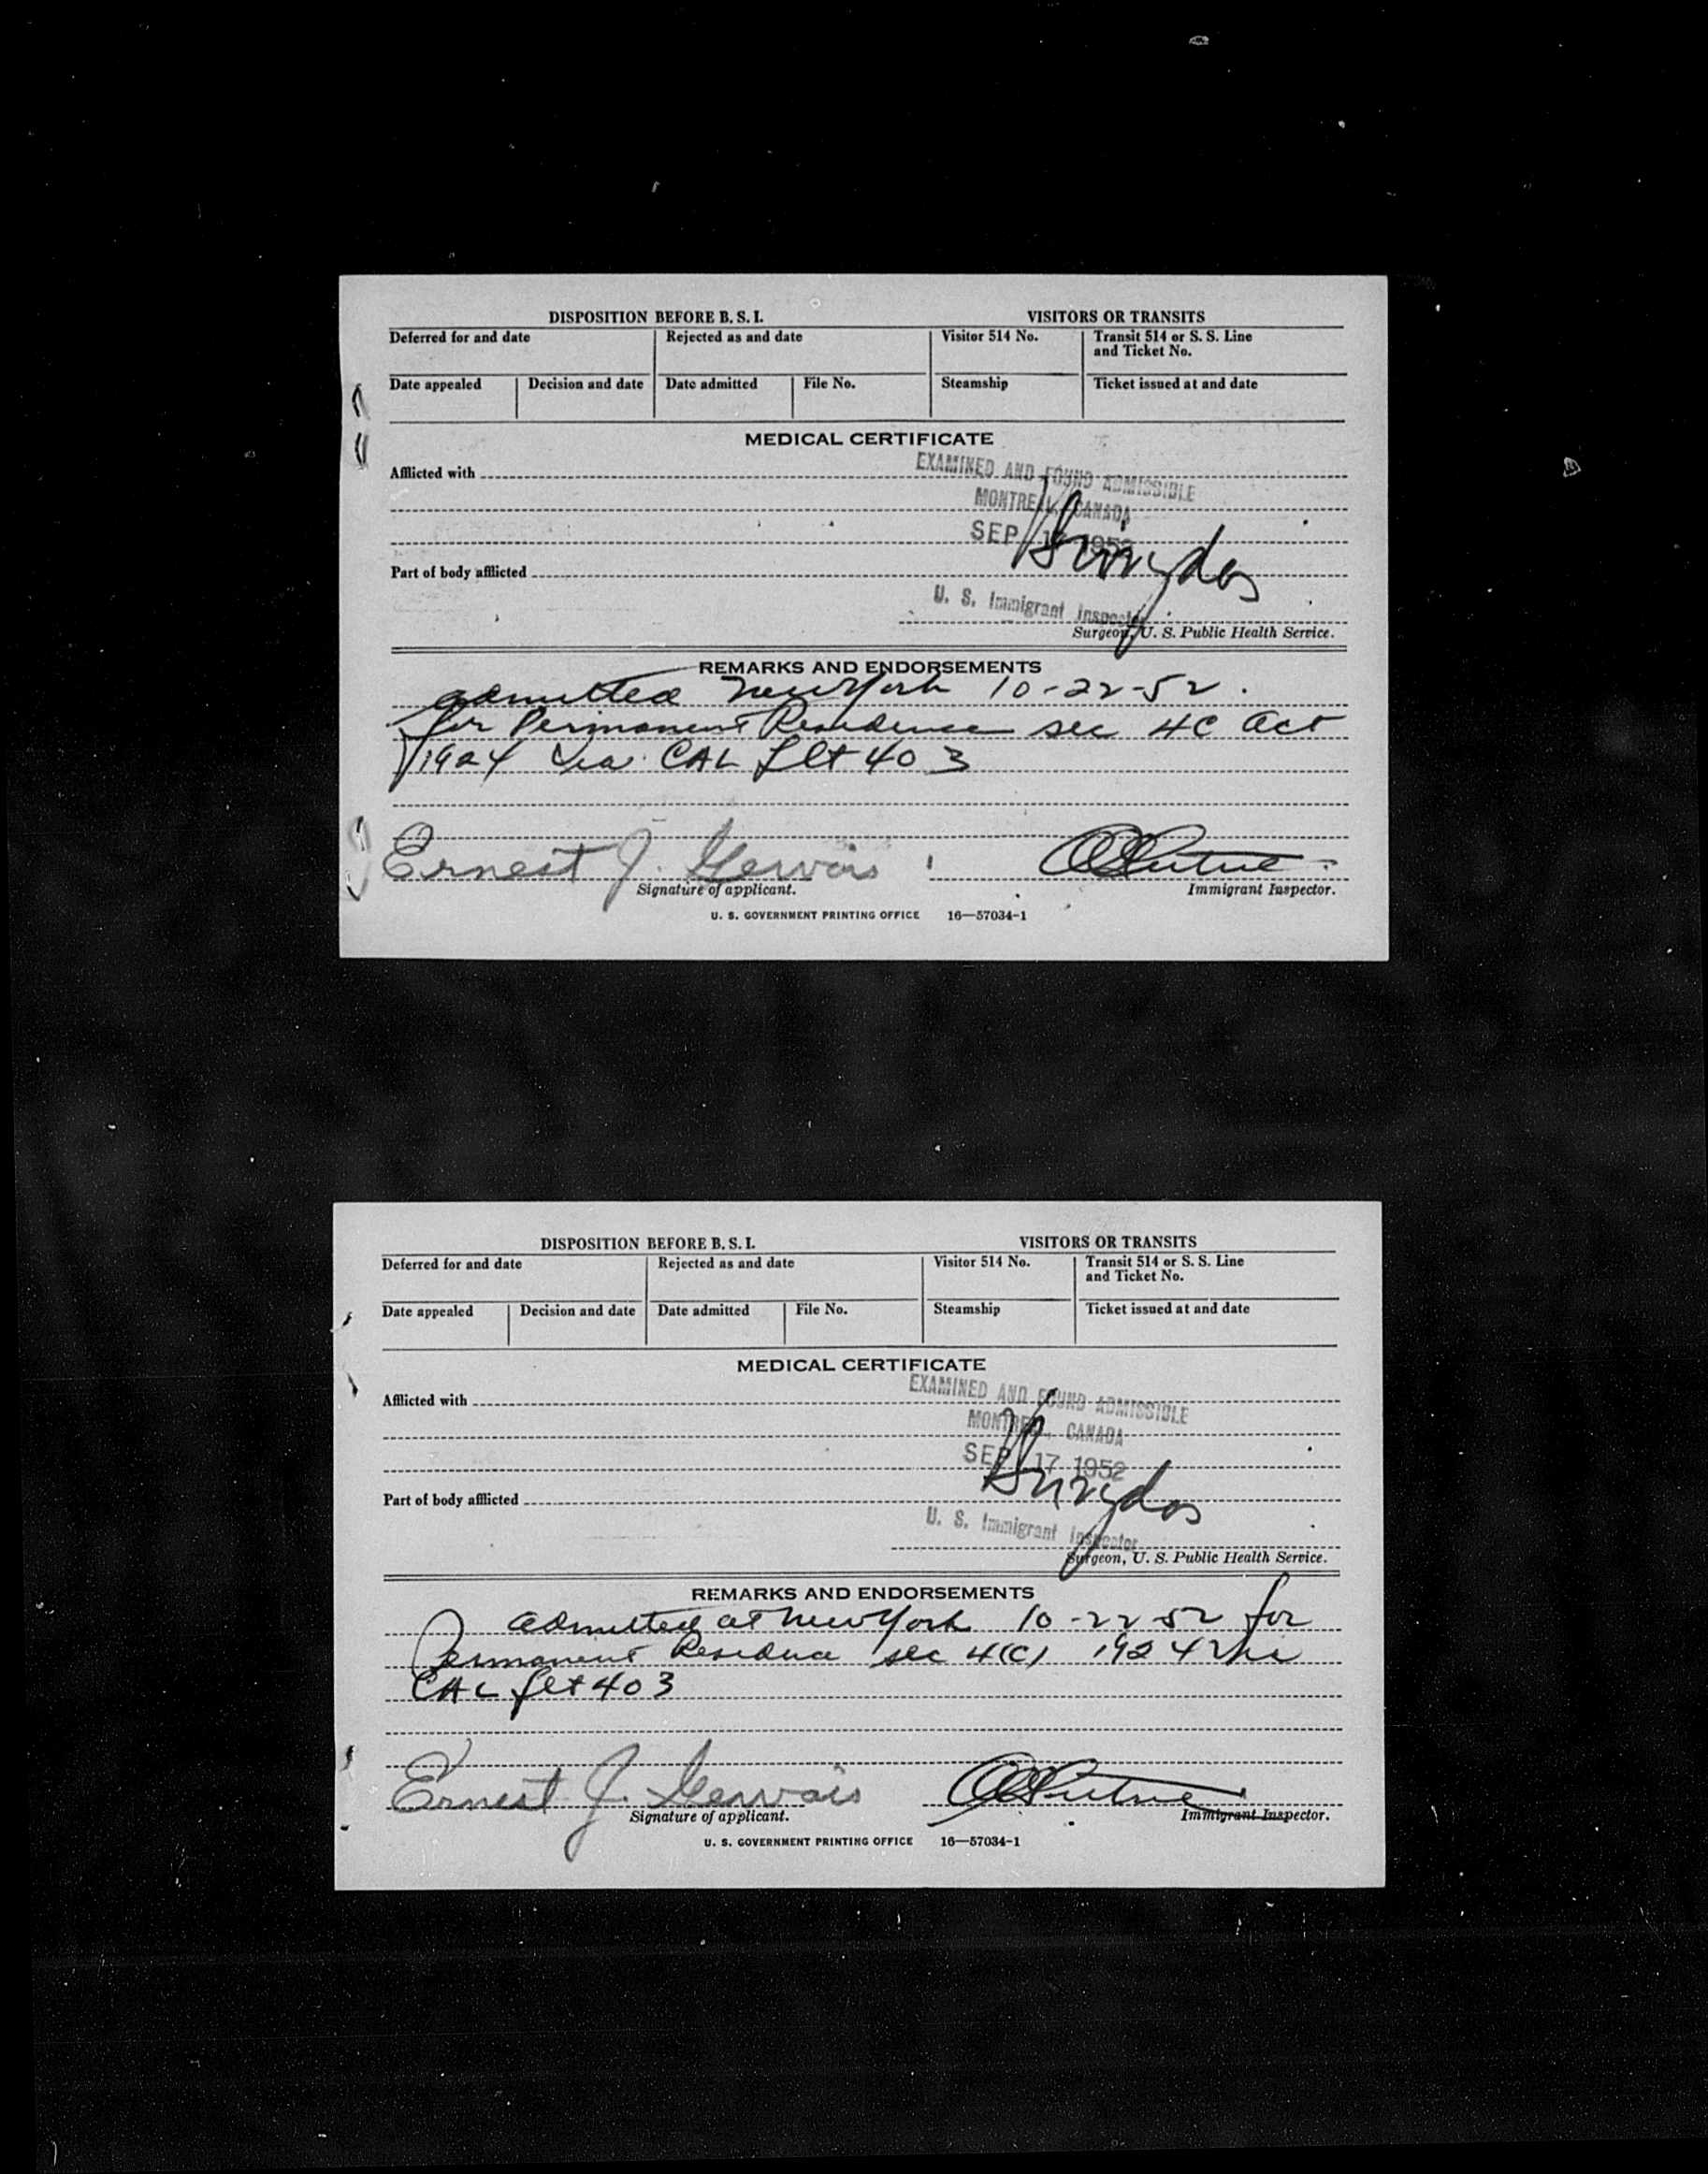 DISPOSITION BEFORE B. S. I. VISITORS OR TRANSITS
Deferred for and date Rejected as and date Visitor 514 No. Transit 514 or S. S. Line
and Ticket No.
Date appealed Decision and date Date admitted File No. Steamship Ticket issued at and date
MEDICAL CERTIFICATE
Afflicted with
EXAMINED AND FOUND ADMISSIBLE
MONTREAL, CANADA
SEP 17 1952
Part of body afflicted
U. S. Immigrant Inspector
Surgeon, U. S. Public Health Service.
REMARKS AND ENDORSEMENTS
admitted New York 10-22-52.
for Permanent Residence sec 4C Act
1924 Via CAL flt 403
Ernest J. Gervais
Signature of applicant. Immigrant Inspector.
U. S. GOVERNMENT PRINTING OFFICE 16—57034-1
DISPOSITION BEFORE B. S. I. VISITORS OR TRANSITS
Deferred for and date Rejected as and date Visitor 514 No. Transit 514 or S. S. Line
and Ticket No.
Date appealed Decision and date Date admitted File No. Steamship Ticket issued at and date
MEDICAL CERTIFICATE
Afflicted with
EXAMINED AND FOUND ADMISSIBLE
MONTREAL, CANADA
SEP 17 1952
Part of body afflicted
U. S. Immigrant Inspector
Surgeon, U. S. Public Health Service.
REMARKS AND ENDORSEMENTS
admitted at New York 10-22-52 for
Permanent Residence sec 4(C) 1924 via
CAL flt 403
Ernest J. Gervais
Signature of applicant. Immigrant Inspector.
U. S. GOVERNMENT PRINTING OFFICE 16—57034-1